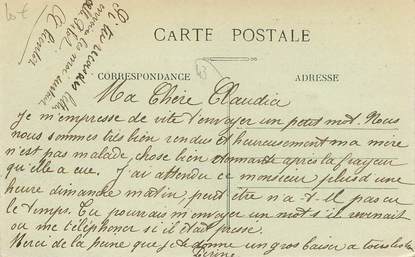 Si tu reviens
CARTE POSTALE
CORRESPONDANCE
ADRESSE
Ma Chère Claudia
Je m'empresse de vite t'envoyer un petit mot. Nous
nous sommes très bien rendus et heureusement ma mère
n'est pas malade, chose bien étonnante après la frayeur
qu'elle a eue. J'ai attendu ce monsieur plus d'une
heure dimanche matin, peut être n'a t-il pas eu
le temps. Tu pourrais m'envoyer un mot s'il revenait
ou me téléphoner si il était pressé.
Merci de la peine que je te donne un gros baiser à tous